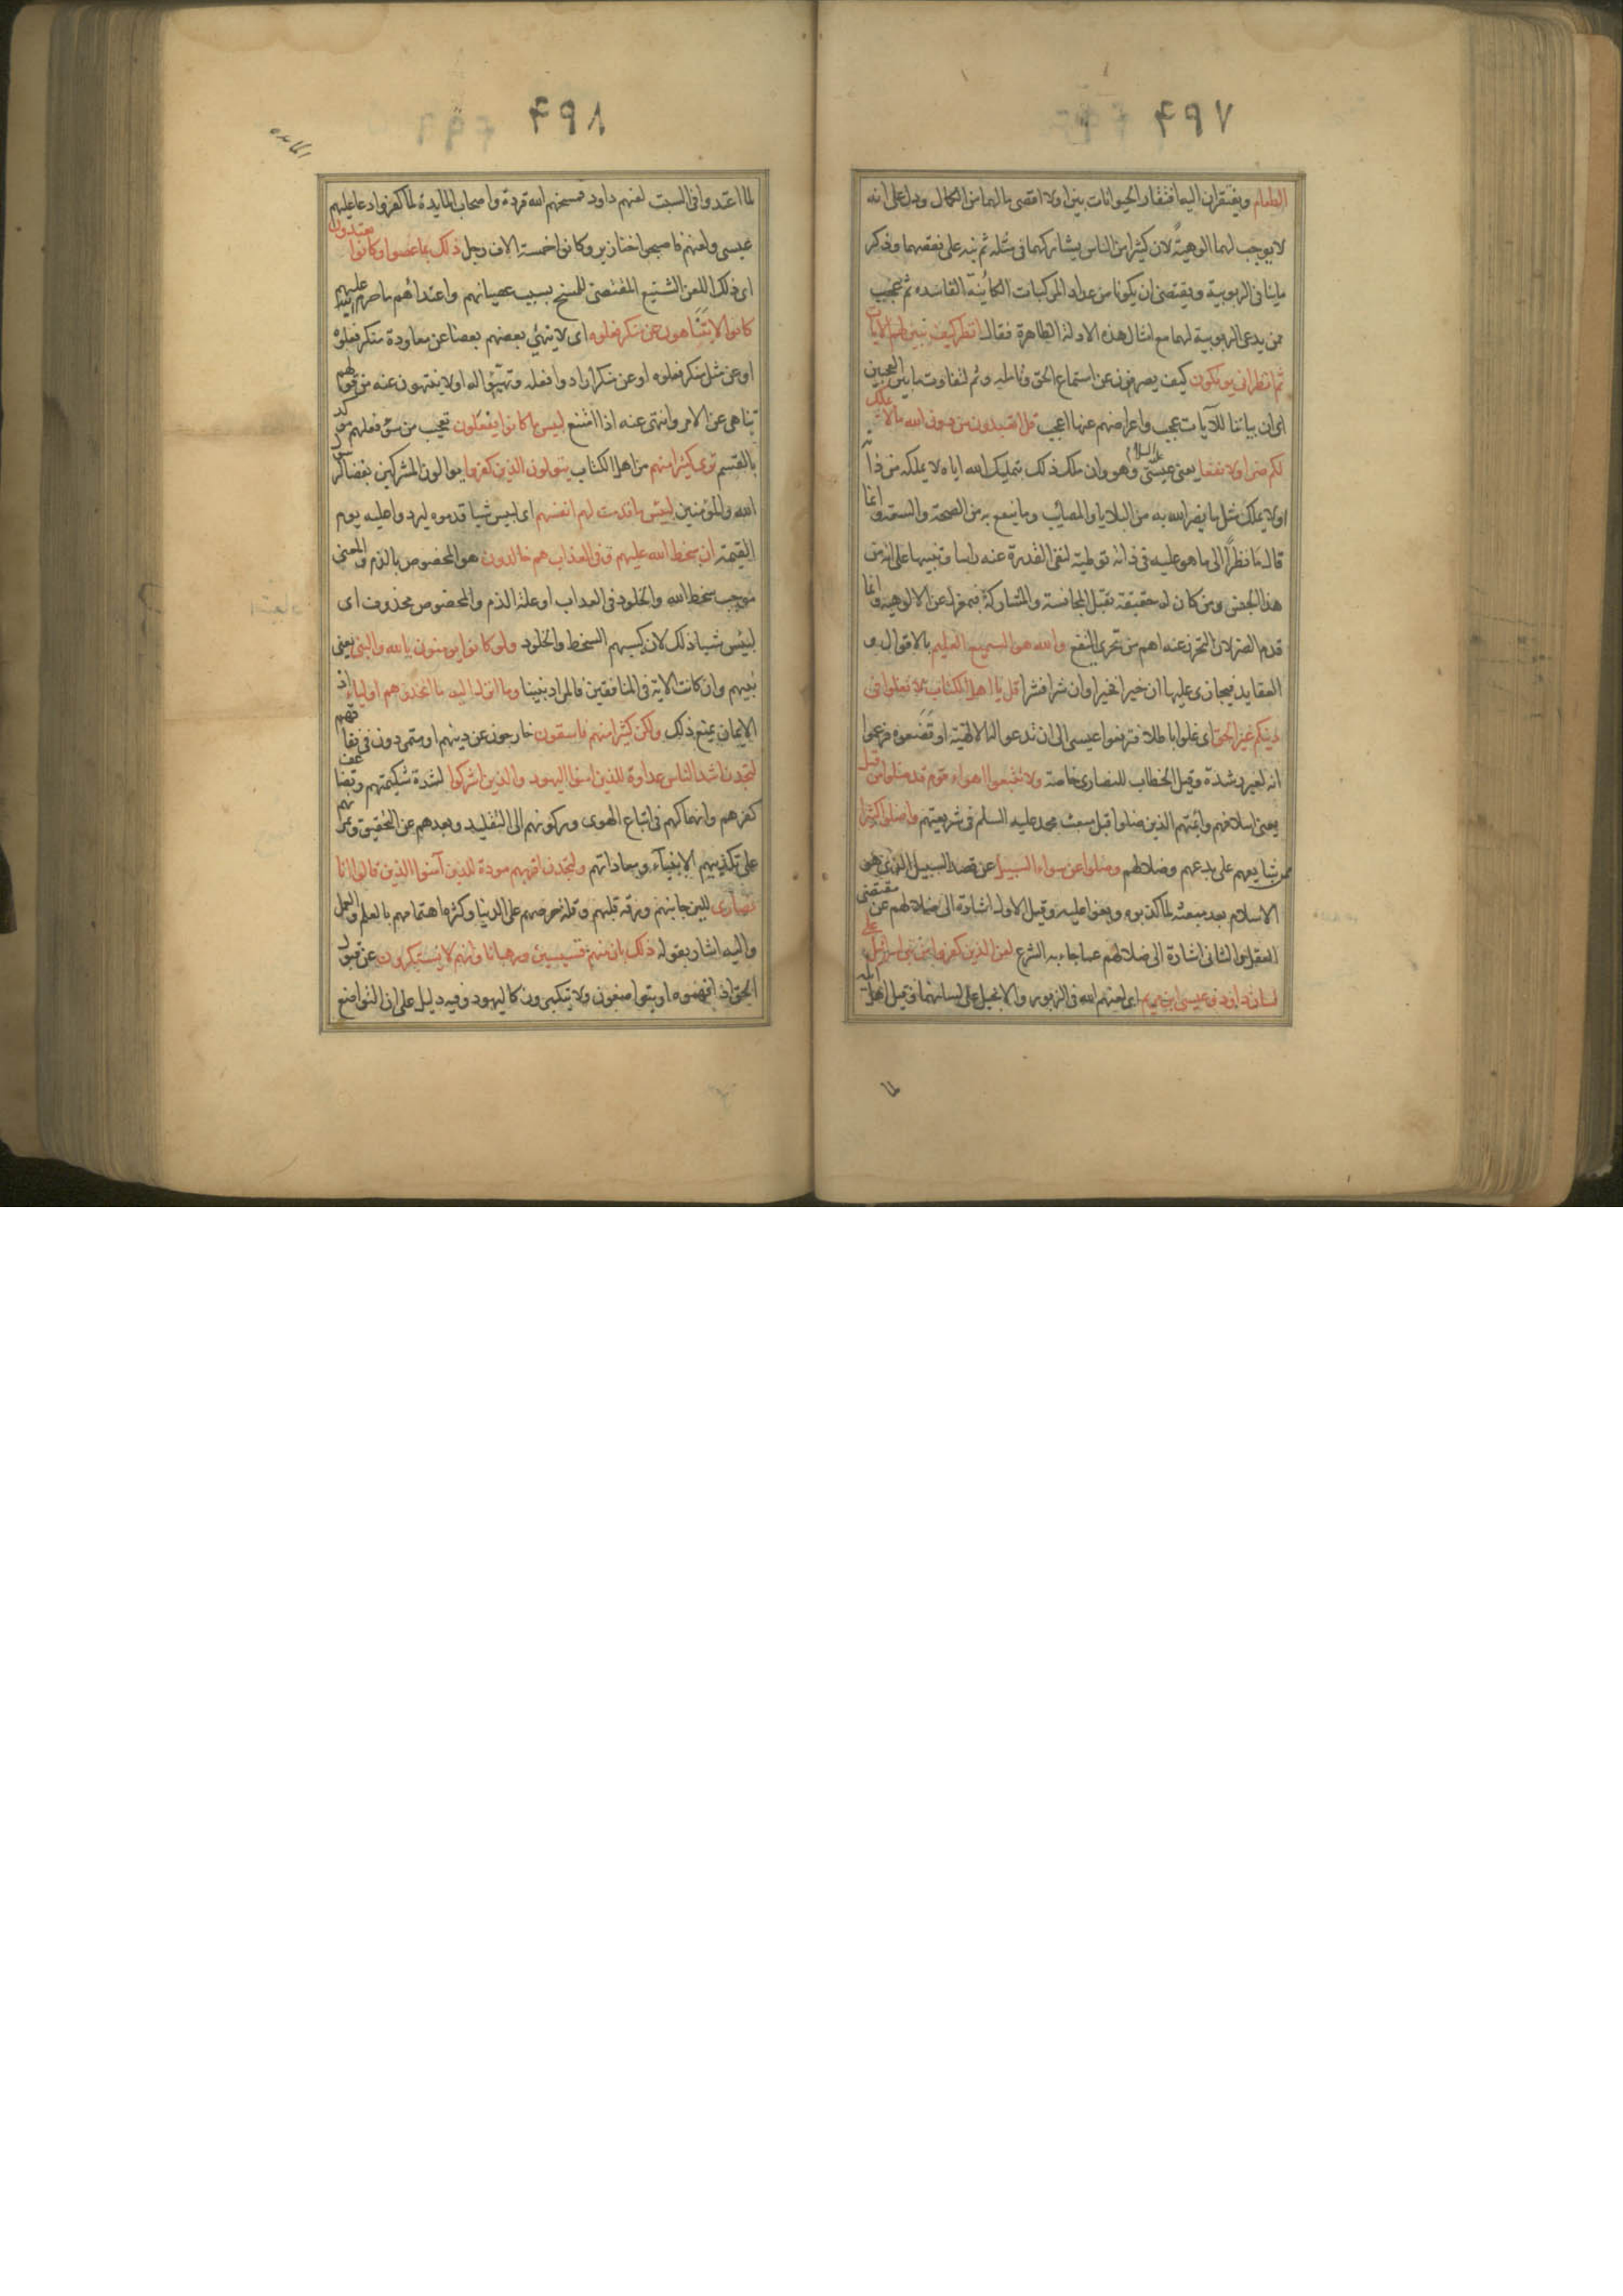 ٤٩٧
الطعام ويفتقران اليه افتقار الحيوانات بين اولا اقصى ما لهما من الكمال ودل على انه
لا يوجب لهما الوهية لان كثيرا من الناس يشاركهما فى مثله ثم نبه على نقصهما وذكر
ما ينافى الربوبية ويقتضى ان يكونا من عداد المركبات الكائنة الفاسده ثم عجب
ممن يدعى الربوبية لهما مع امثال هذه الادلة الظاهرة فقال انظر كيف نبين لهم الايات
ثم انظر انى يوفكون كيف يصرفون عن استماع الحق وتامله وثم لتفاوت ما بين العجبين
اى ان بياننا للآيات عجب واعراضهم عنها اعجب قل اتعبدون من دون الله ما لا يملك
لكم ضرا ولا نفعا يعنى عيسى عليه السلام وهو وان ملك ذلك بتمليك الله اياه لا يملكه من ذاته
او لا يملك مثل ما يضر الله به من البلايا والمصائب وما ينفع به من الصحة والسعة وانما
قال ما نظرا الى ما هو عليه فى ذاته توطية لنفى القدرة عنه راسا وتنبيها على انه من
هذا الجنس ومن كان له حقيقة تقبل المجانسة والمشاركة فبمعزل عن الالوهية وانما
قدم الضر لان التحرز عنه اهم من تحرى النفع والله هو السميع العليم بالاقوال و
العقايد فيجازى عليها ان خيرا فخيرا وان شرا فشرا قل يا اهل الكتاب لا تغلوا فى
دينكم غير الحق اى غلوا باطلا فترفعوا عيسى الى ان تدعوا له الالهية او تضعوه فتزعموا
انه لغير رشدة وقيل الخطاب للنصارى خاصة ولا تتبعوا اهواء قوم قد ضلوا من قبل
يعنى اسلافهم وايمتهم الذين ضلوا قبل مبعث محمد عليه السلم فى شريعتهم واضلوا كثيرا
ممن شايعهم على بدعهم وضلالهم وضلوا عن سواء السبيل عن قصد السبيل الذى هو
الاسلام بعد مبعثه لما كذبوه وبغوا عليه وقيل الاول اشارة الى ضلالهم عن مقتضى
العقل والثانى اشارة الى ضلالهم عما جاء به الشرع لعن الذين كفروا من بنى اسرائيل على
لسان داود وعيسى ابن مريم اى لعنهم الله فى الزبور والانجيل على لسانهما وقيل اهل ايلة
لما
٤٩٨
المايده
لما اعتدوا فى السبت لعنهم داود فمسخهم الله قردة واصحاب المايدة لما كفروا دعا عليهم
عيسى ولعنهم فاصبحوا خنازير وكانوا خمسة الاف رجل ذلك بما عصوا وكانوا يعتدون
اى ذلك اللعن الشنيع المقتضى للمسخ بسبب عصيانهم واعتدائهم ما حرم عليهم
كانوا لا يتناهون عن منكر فعلوه اى لا ينهى بعضهم بعضا عن معاودة منكر فعلوه
او عن مثل منكر فعلوه او عن منكر ارادوا فعله وتهيئوا له او لا ينتهون عنه من قولهم
تناهى عن الامر وانتهى عنه اذا امتنع لبيس ما كانوا يفعلون تعجب من سوء فعلهم موكد
بالقسم ترى كثيرا منهم من اهل الكتاب يتولون الذين كفروا يوالون المشركين بغضا لرسول
الله والمؤمنين لبيئس ما قدمت لهم انفسهم اى لبيس شيا قدموه ليردوا عليه يوم
القيمة ان سخط الله عليهم وفى العذاب هم خالدون هو المخصوص بالذم والمعنى
موجب سخط الله والخلود فى العذاب او علة الذم والمخصوص محذوف اى
لبيئس شيا ذلك لان كسبهم السخط والخلود ولو كانوا يومنون بالله والنبى يعنى
نبيهم وان كانت الاية فى المنافقين فالمراد نبينا وما انزل اليه ما اتخذوهم اولياء اذ
الايمان يمنع ذلك ولكن كثيرا منهم فاسقون خارجون عن دينهم او متمردون فى نفاقهم
لتجدن اشد الناس عداوة للذين امنوا اليهود والذين اشركوا لشدة شكيمتهم وتضاعف
كفرهم وانهماكهم فى اتباع الهوى وركونهم الى التقليد وبعدهم عن التحقيق وتمرنهم
على تكذيبهم الانبياء ومعاداتهم ولتجدن اقربهم مودة للذين آمنوا الذين قالوا انا
نصارى للين جانبهم ورقة قلبهم وقلة حرصهم على الدنيا وكثرة اهتمامهم بالعلم والعمل
واليه اشار بقوله ذلك بان منهم قسيسين ورهبانا وانهم لا يستكبرون عن قبول
الحق اذا فهموه او يتواضعون ولا يتكبرون كاليهود وفيه دليل على ان التواضع